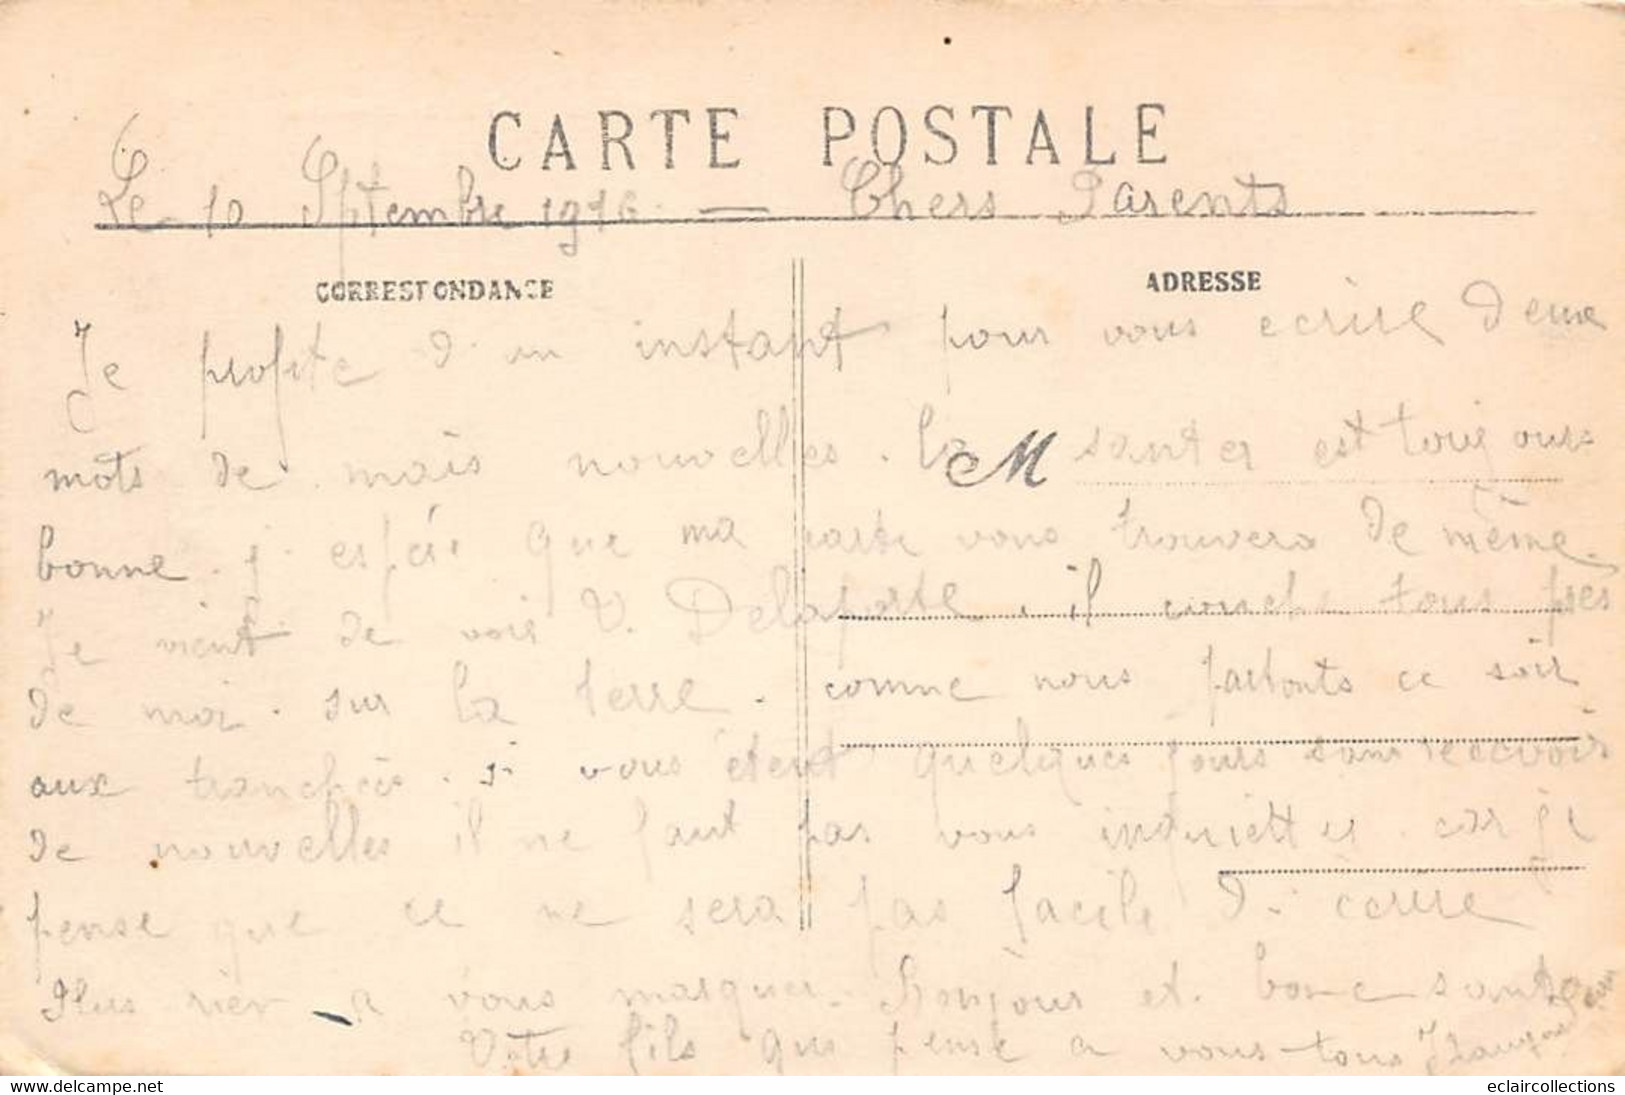 CARTE POSTALE
Le 10 Sptembre 1916 — Chers Parents
CORRESPONDANCE
ADRESSE
Je profite d'un instant pour vous ecrire deux
mots de mais nouvelles. la santer est toujours
M
bonne. j'espère que ma carte vous trouvera de même.
Je vient de voir V. Delaporte. il couche tous près
de moi. sur la terre. comme nous partonts ce soir
aux tranchées. si vous êtent quelques jours sans recevoir
de nouvelles il ne faut pas vous inquietter car je
pense que ce ne sera pas facile d'écrire
Plus rien a vous marquer. Bonjour et bonne santé
Votre fils qui pense a vous tous
www.delcampe.net
eclaircollections